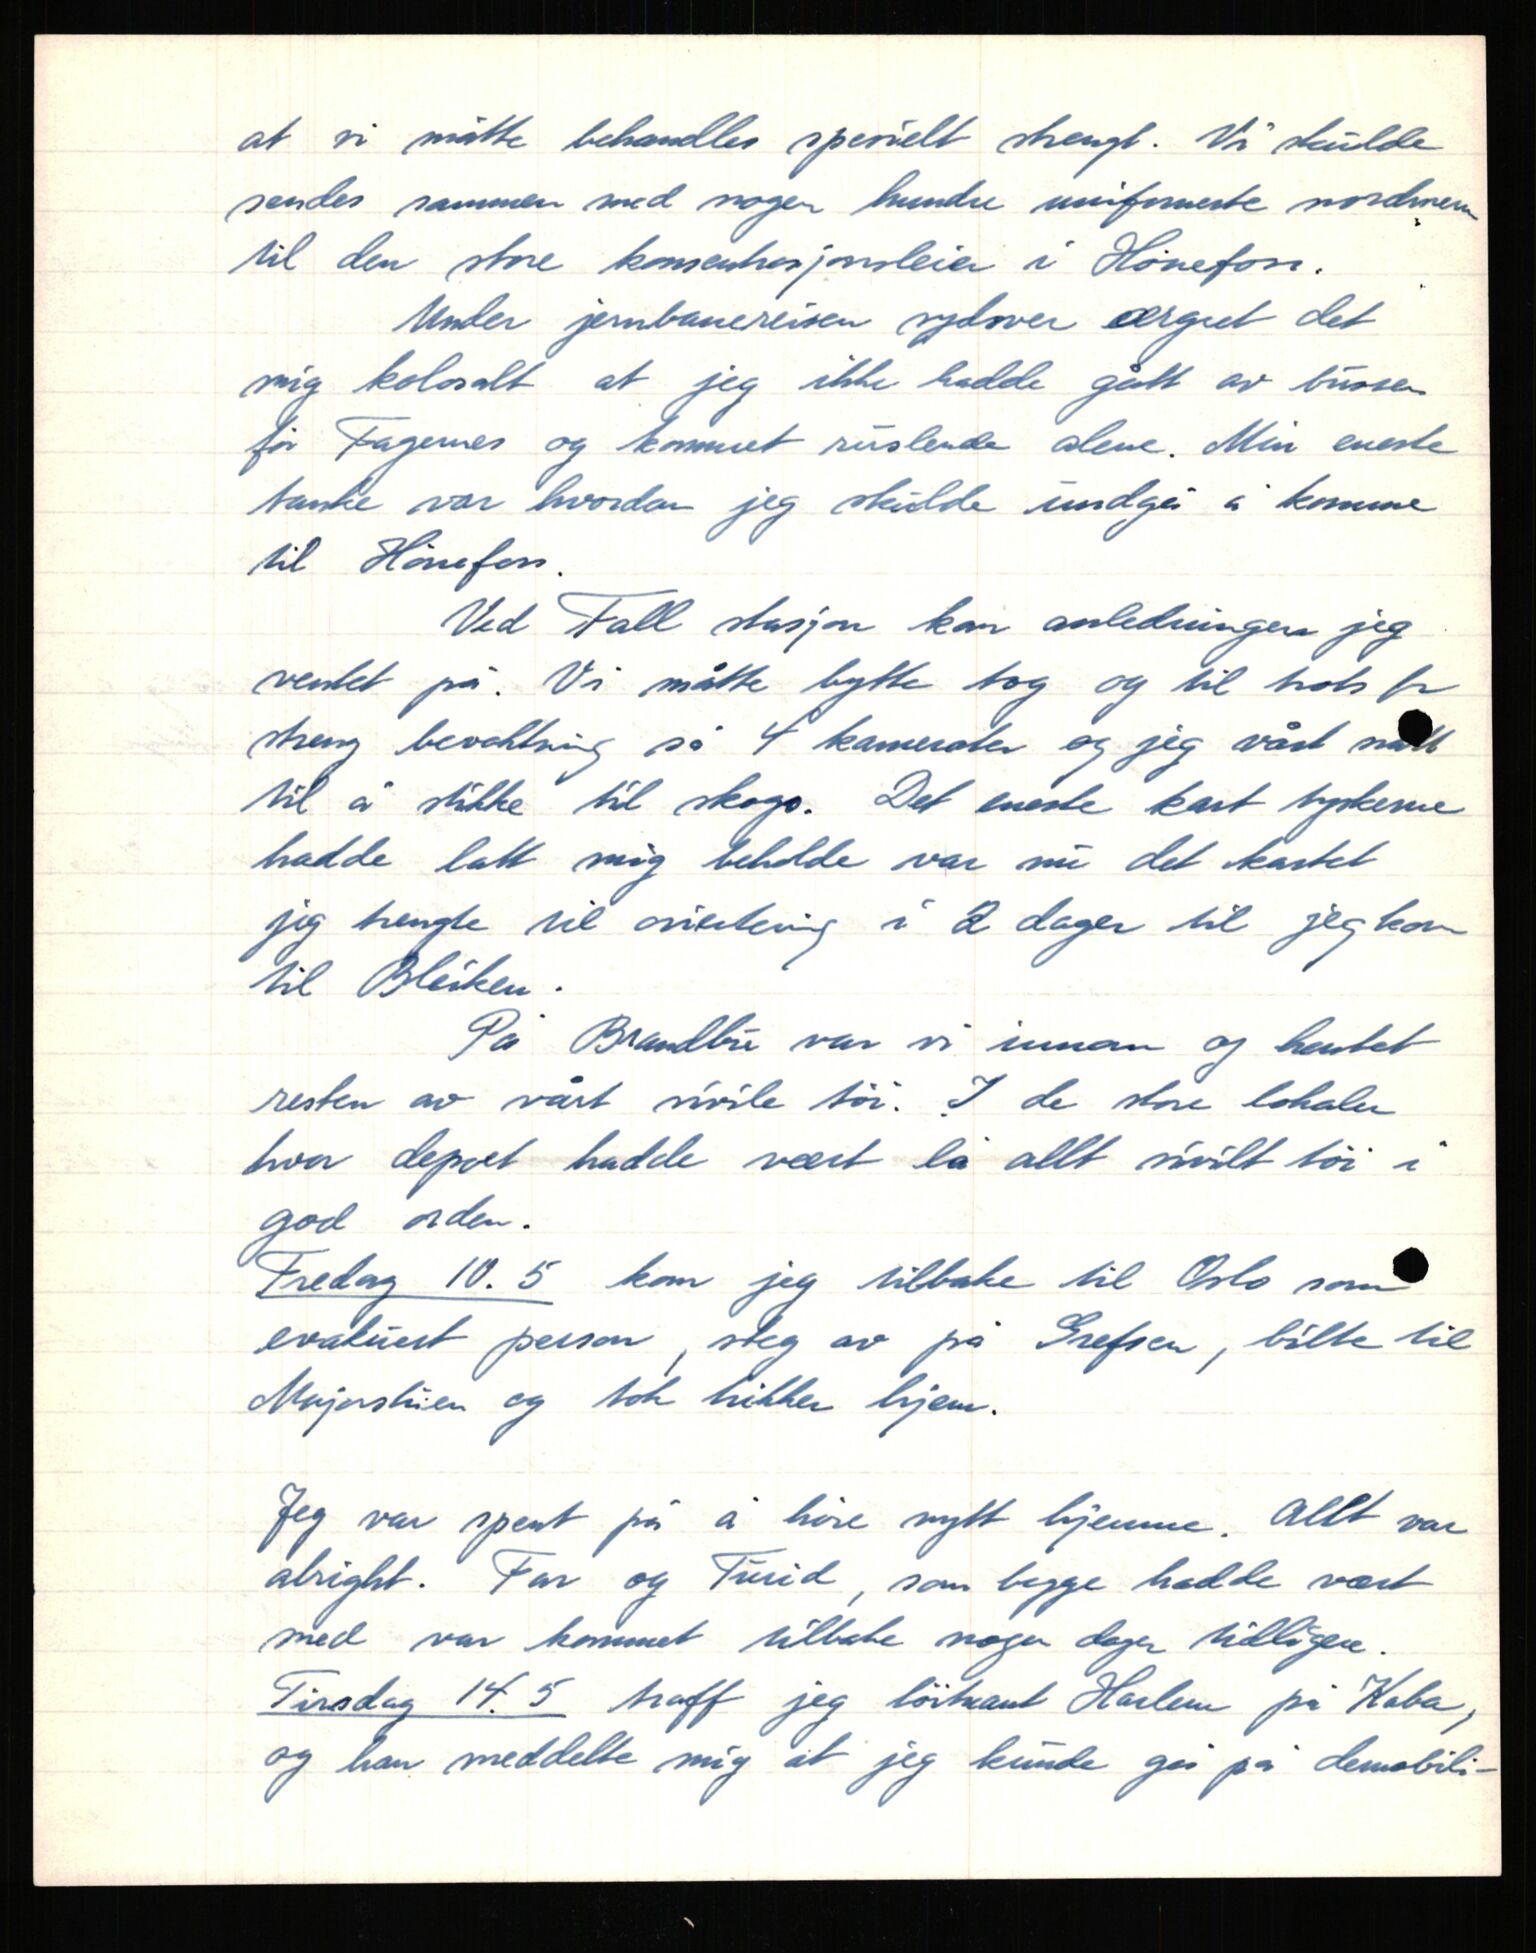 at vi måtte behandles spesielt strengt. Vi skulde
sendes sammen med nogen hundre uniformerte nordmenn
til den store konsentrasjonsleier i Hönefoss.
Under jernbanereisen sydover ærgret det
mig kolosalt at jeg ikke hadde gått av bussen
för Fagernes og kommet ruslende alene. Min eneste
tanke var hvordan jeg skulde undgå å komme
til Hönefoss.
Ved Fall stasjon kom anledningen jeg
ventet på. Vi måtte bytte tog og til trots for
streng bevoktning så 4 kamerater og jeg vårt snitt
til å stikke til skogs. Det eneste kart tyskerne
hadde latt mig beholde var nu det kartet
jeg trengte til orientering i 2 dager til jeg kom
til Bleiken.
På Brandbu var vi innom og hentet
resten av vårt sivile töi. I de store lokaler
hvor depoet hadde vært lå allt sivilt töi i
god orden.
Fredag 10. 5 kom jeg tilbake til Oslo som
evakuert person, steg av på Grefsen, bilte til
Majorstuen og tok trikken hjem.
Jeg var spent på å höre nytt hjemme. Allt var
alright. Far og Turid, som begge hadde vært
med var kommet tilbake nogen dager tidligere.
Tirsdag 14. 5 traff jeg löitnant Harlem på Kaba,
og han meddelte mig at jeg kunde gå på demobili-